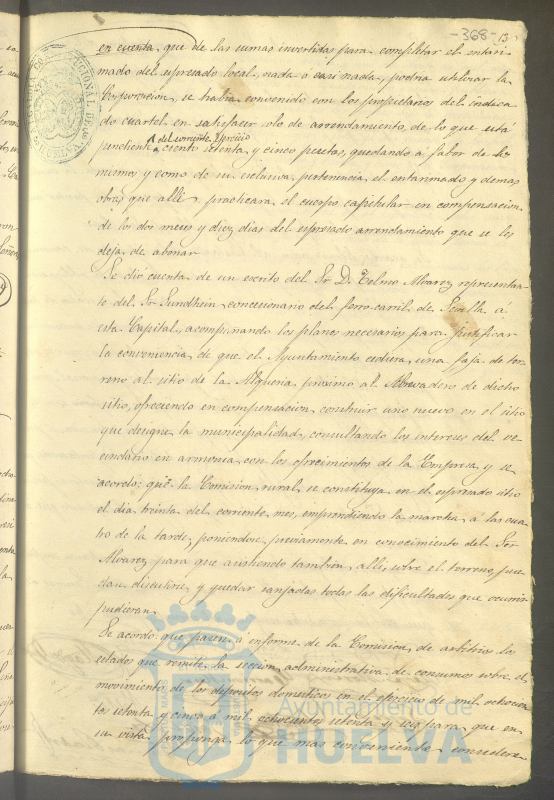 -368- 13
en cuenta, que de las sumas invertidas para completar el entari-
mado del espresado local, nada ó casi nada, podria utilizar la
Corporacion, se habia convenido con los propietarios del indica-
do cuartel en satisfacer solo de arrendamiento, de lo que está
pendiente, del corriente ejercicio ciento setenta y cinco pesetas, quedando á fabor de los
mismos y como de su esclusiva pertenencia el entarimado y demas
obras que alli practicara el cuerpo capitular en compensacion
de los dos meses y diez dias del espresado arrendamiento que se les
deja de abonar
Se dió cuenta de un escrito del Sr. D. Telmo Alvarez representan-
te del Sr Sundheim concesionario del ferro-carril de Sevilla á
esta Capital, acompañando los planos necesarios para justificar
la conveniencia de que el Ayuntamiento cediera una faja de ter-
reno al sitio de la Alqueria, proximo al Abrevadero de dicho
sitio, ofreciendo en compensacion construir uno nuevo en el sitio
que designe la municipalidad, consultando los intereses del ve-
cindario en armonia con los ofrecimientos de la Empresa y se
acordó: que la Comision rural, se constituya en el espresado sitio
el dia treinta del corriente mes, emprendiendo la marcha á las cua-
tro de la tarde, poniendose previamente en conocimiento del Sor
Alvarez para que asistiendo tambien, alli, sobre el terreno, pue-
dan discutirse y quedar zanjadas todas las dificultades que ocurrir
pudieran
Se acordó que pasen á informe de la Comision de arbitrios los
estados que remite la seccion administrativa de consumos sobre el
movimiento de los depositos domesticos en el ejercicio de mil ochocien-
tos setenta y cinco á mil ochocientos setenta y seis para que en
su vista proponga lo que mas conveniente considere
Ayuntamiento de
HUELVA